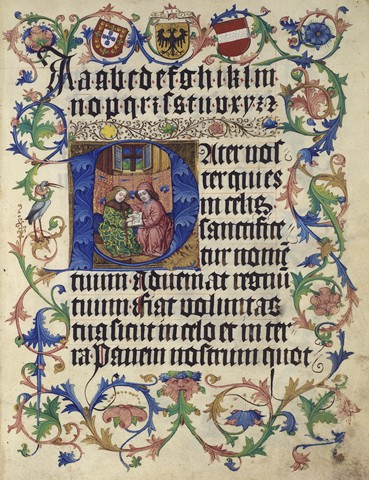 A a a b c d e f g h i k l m
n o p q r ꝛ s ſ t u v x y z ꝛ
Pater nos
ter qui es
in celis
sanctifice
tur nomē
tuum Adueniat regnū
tuum Fiat voluntas
tua sicut in celo et in ter
ra Panem nostrum quot